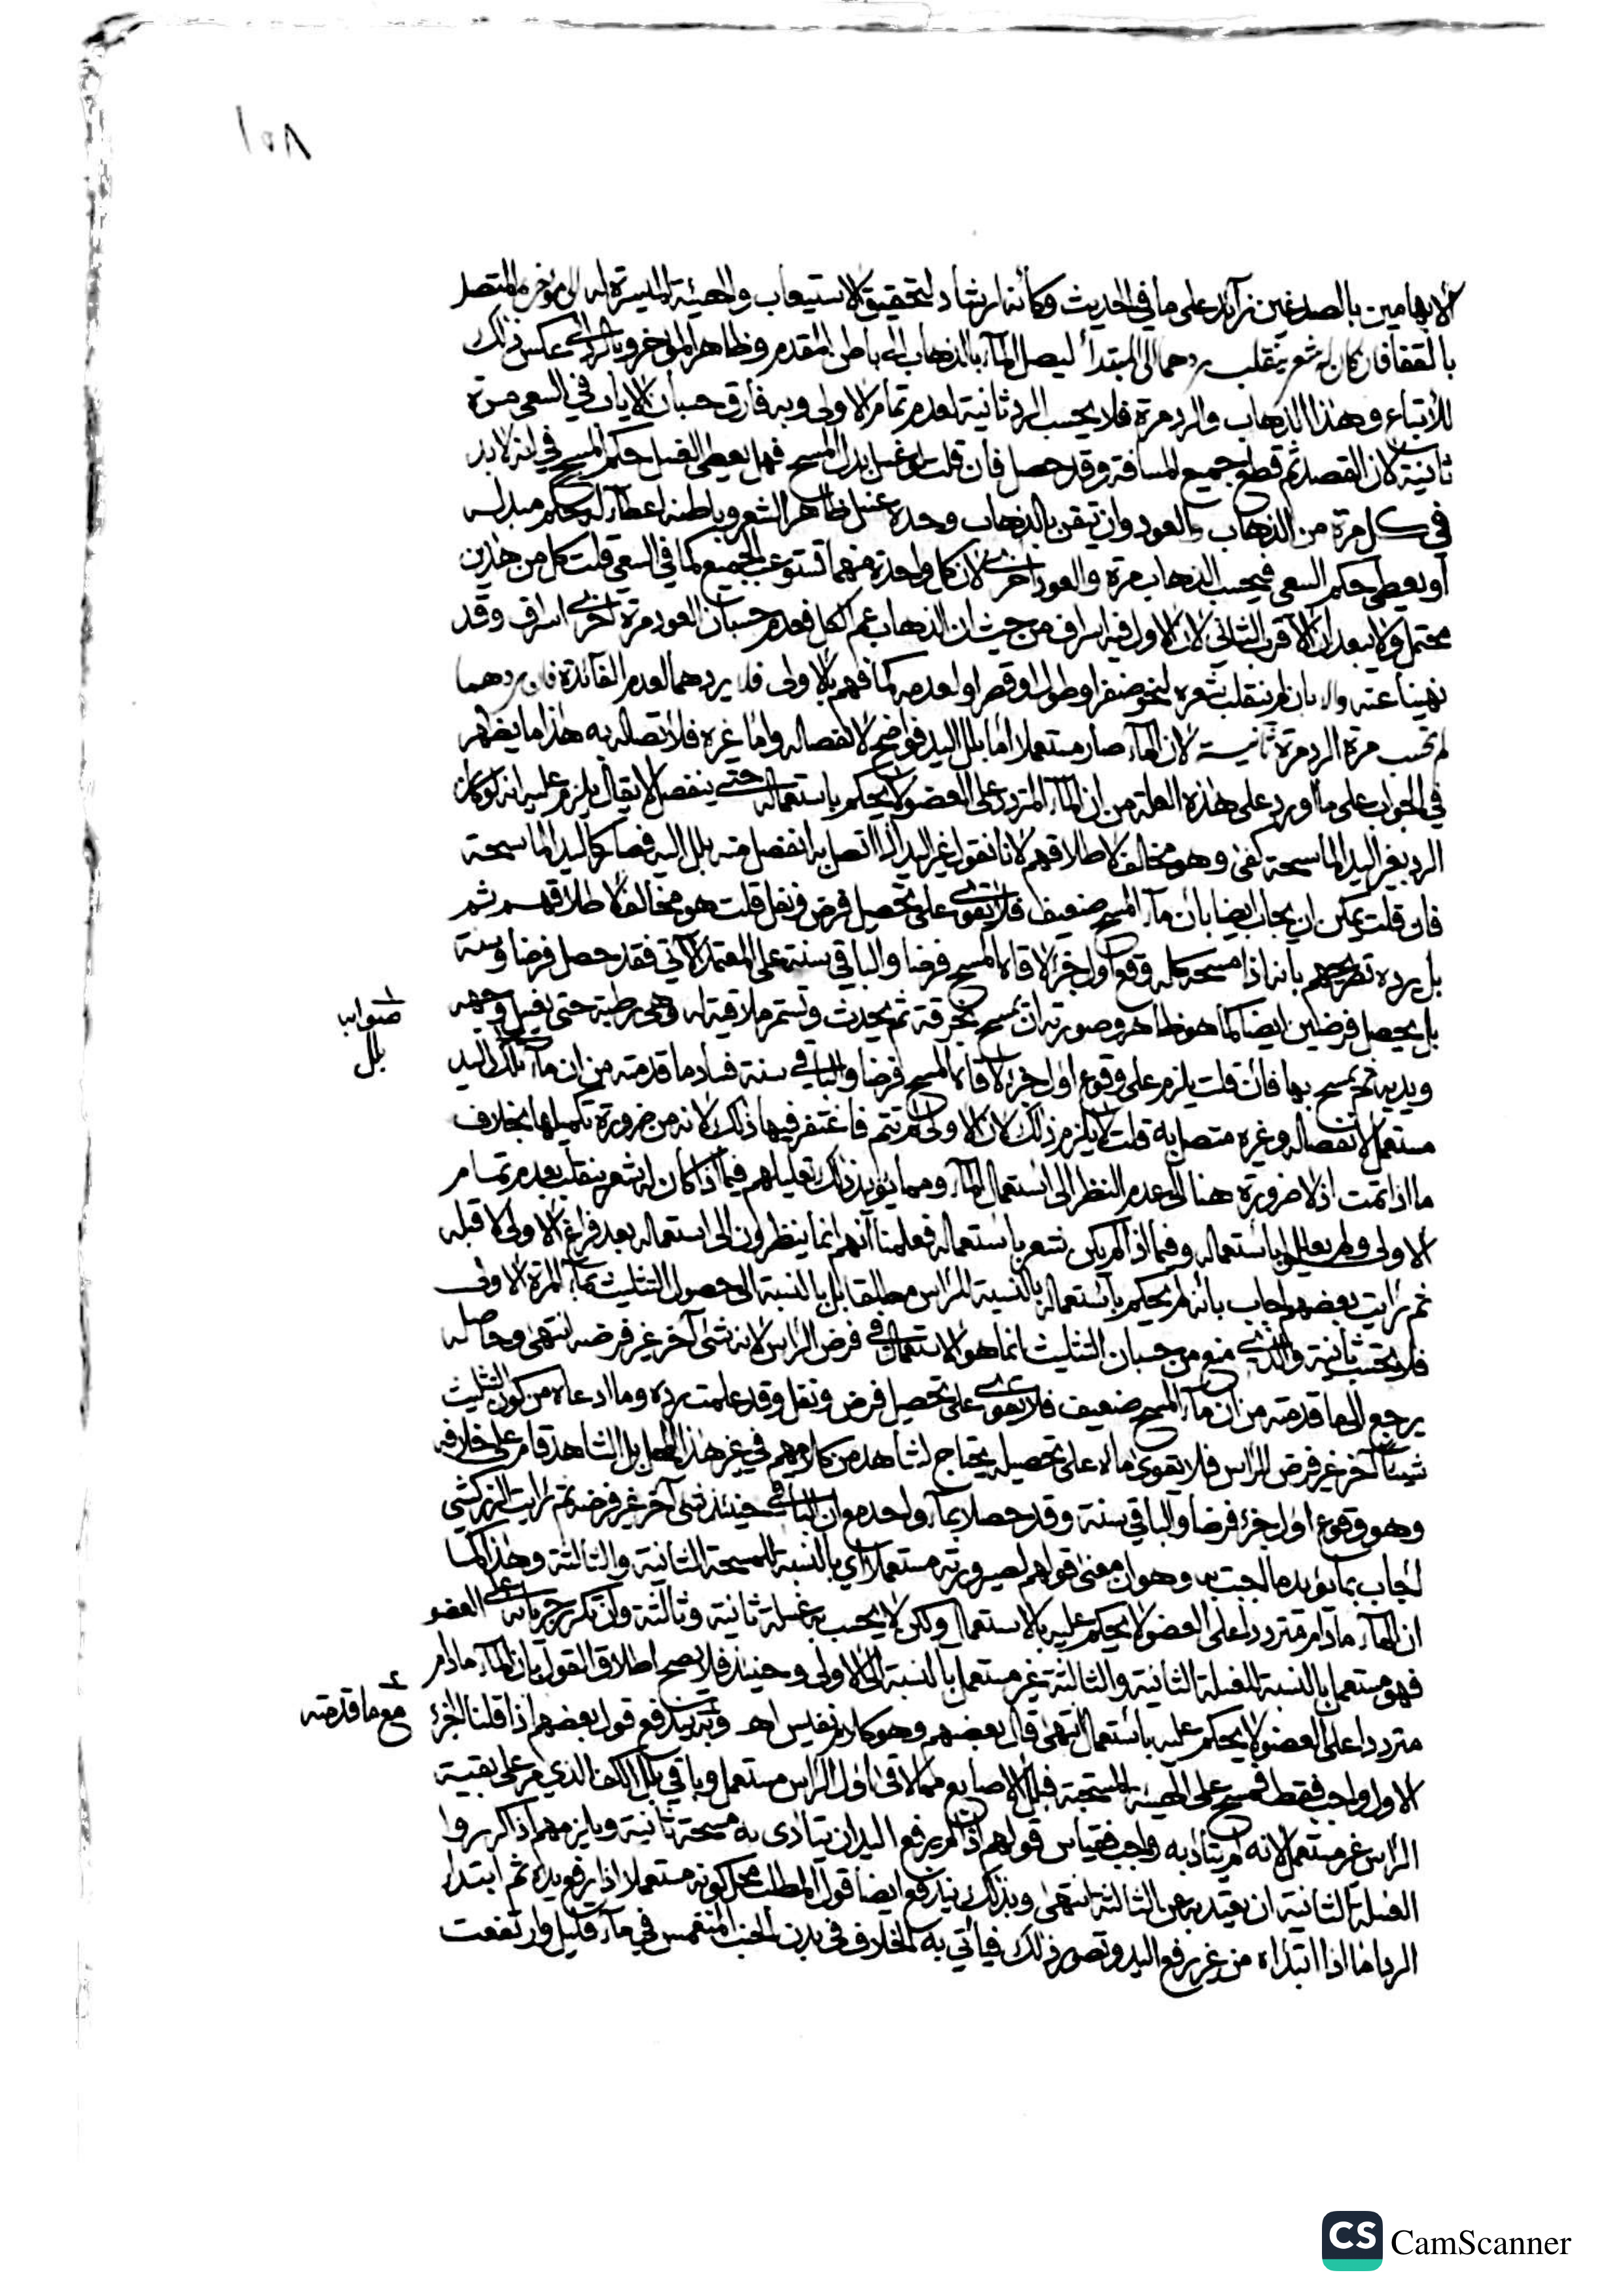 ١٥٨
الابهامين بالصدغين زائد على ما في الحديث وكأنه ارشاد لتحقيق الاستيعاب والهيئة الميسرة له الى مؤخره المتصل
بالقفا فان كان له شعر ينقلب ردهما الى المبتدأ ليصل الماء بالذهاب الى باطن المقدم وظاهر المؤخر وبالرد الى عكس ذلك
للاتباع وهذا الذهاب والرد مرة فلا يحسب الرد ثانية لعدم تمام الاولى وبه فارق حسبان الاياب في السعي مرة
ثانية لان القصد ثم قطع جميع المسافة وقد حصل فان قلت لو غسل بدل المسح فهل يعطى الغسل حكم المسح في انه لا بد
في كل مرة من الذهاب والعود وان تيقن بالذهاب وحده غسل ظاهر الشعر وباطنه اعطاء له حكم مبدله
او يعطى حكم السعي فيحسب الذهاب مرة والعود اخرى لان كل واحدة منهما تستوعب الجميع كما في السعي قلت كل من هذين
محتمل ولا يبعد ان الاقرب الثاني لان الاول فيه اسراف من حيث ان الذهاب عم الكل فعدم حسبان العود مرة اخرى اسراف وقد
نهينا عنه والا بان لم ينقلب شعره لنحو ضفر او طول او قصر او لعدمه كما فهم بالاولى فلا يردهما لعدم الفائدة فان ردهما
لم تحسب مرة الرد مرة ثانية لان الماء صار مستعملا اما بلل اليد فواضح لانفصاله واما غيره فلاتصاله به هذا ما يظهر
في الجواب على ما اورد على هذه العلة من ان الماء المتردد على العضو لا يحكم باستعماله حتى ينفصل لا يقال يلزم عليه انه لو كان
الرد بغير اليد الماسحة كفى وهو مخالف لاطلاقهم لانا نقول غير اليد اذا اتصل به انفصل منه بلل اليه فصار كاليد الماسحة
فان قلت يمكن ان يجاب ايضا بان ماء المسح ضعيف فلا يقوى على تحصيل فرض ونفل قلت هو مخالف لاطلاقهم ثم
بل يرده تصريحهم بانه اذا مسح كله وقع اول جزء لاقاه المسح فرضا والباقي سنة على المعتمد الاتي فقد حصل فرضا وسنة
بل يحصل فرضين ايضا كما هو ظاهر وصورته ان يمسح بخرقة ثم يحدث وتستمر ملاقية له وهي رطبة حتى يغسل وجهه
ويديه ثم يمسح بها فان قلت يلزم على وقوع اول جزء لاقاه المسح فرضا والباقي سنة فساد ما قدمته من ان ماء تلك اليد
صواب
بلل
مستعمل لانفصاله وغيره متصل به قلت لا يلزم ذلك لان الاولى لم تتم فاغتفر فيها ذلك لانه من ضرورة تكميلها بخلاف
ما اذا تمت اذ لا ضرورة هنا الى عدم النظر الى استعمال الماء ومما يؤيد ذلك تعليلهم فيما اذا كان له شعر ينقلب بعدم تمام
الاولى ولم يعللوا باستعماله وفيما اذا لم يكن شعر باستعماله فعلمنا انهم انما ينظرون الى استعماله بعد فراغ الاولى لا قبله
ثم رايت بعضهم اجاب بانه لم يحكم باستعماله بالنسبة للراس مطلقا بل بالنسبة الى حصول التثليث بماء المرة الاولى
فلا تحسب ثانية والذي منع من حسبان التثليث انما هو الاستعمال في فرض الراس لانه شيء آخر غير فرضه انتهى وحاصله
يرجع الى ما قدمته من ان ماء المسح ضعيف فلا يقوى على تحصيل فرض ونفل وقد علمت رده وما ادعاه من كون التثليث
شيئا آخر غير فرض الراس فلا يقوى ماؤه على تحصيله يحتاج لشاهد من كلامهم في غير هذا المحل بل الشاهد قام على خلافه
وهو وقوع اول جزء فرضا والباقي سنة وقد حصلا بماء واحد مع ان الباقي حينئذ شيء آخر غير فرضه ثم رايت الزركشي
اجاب بما يؤيد ما اجبت به وهو ان معنى قولهم لصيرورته مستعملا اي بالنسبة للمسحة الثانية والثالثة وهذا كما
ان الماء ما دام مترددا على العضو لا يحكم عليه بالاستعمال ولكن لا يحسب به غسلة ثانية وثالثة وان تكرر جريانه على العضو
فهو مستعمل بالنسبة للغسلة الثانية والثالثة غير مستعمل بالنسبة الى الاولى وحينئذ فلا يصح اطلاق القول بان الماء ما دام
مترددا على العضو لا يحكم عليه باستعمال انتهى قال بعضهم وهو كلام نفيس اهـ وبه يندفع قول بعضهم اذا قلنا الجزء
مع ما قدمته
الاول واجب فقط فمسح على الهيئة المستحبة فبلل الاصابع مما لاقى اول الراس مستعمل وباقي بلل الكف الذي مر على بقية
الراس غير مستعمل لانه لم يتأد به واجب فقياس قولهم اذا لم يرفع اليد ان يتأدى به مسحة ثانية ويلزمهم اذا كرروا
الغسلة الثانية ان يقيد به عن الثالثة انتهى وبذلك يندفع ايضا قول المطلب محل كونه مستعملا اذا رفع يده ثم ابتدا
الرد اما اذا ابتداه من غير رفع اليد وتصور ذلك فيأتي به الخلاف في بدن الجنب المنغمس في ماء قليل وارتفعت
CS CamScanner